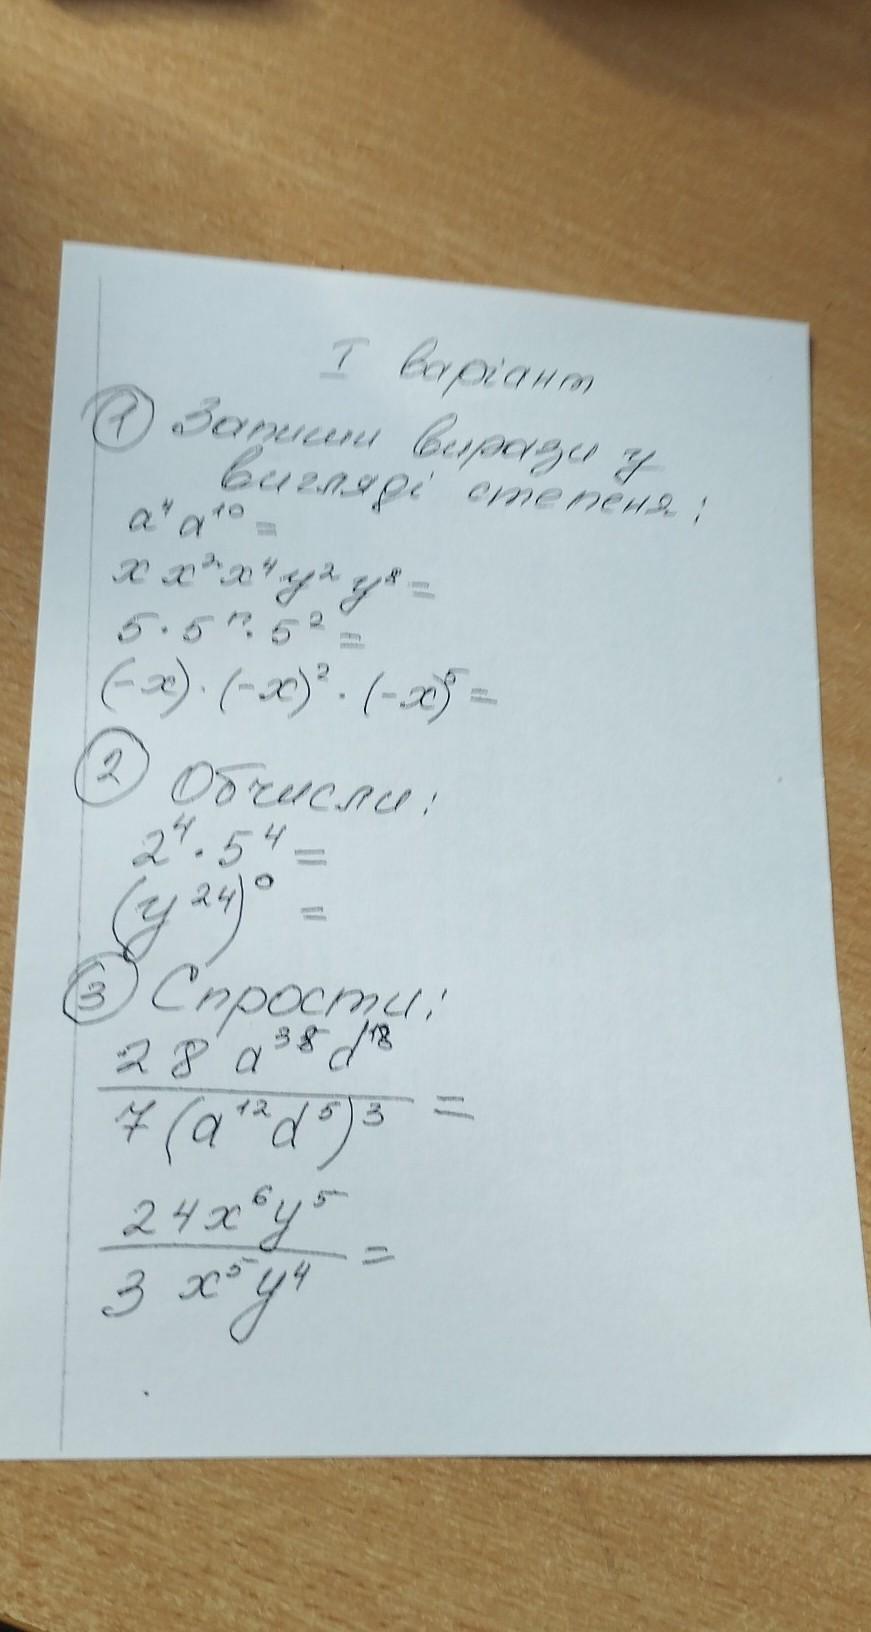 I варіант
① Запиши вирази у
вигляді степеня:
a⁴a¹⁰=
x x²x⁴y²y⁸=
5·5ⁿ·5²=
(-x)·(-x)²·(-x)⁵=
② Обчисли:
2⁴·5⁴=
(y²⁴)⁰ =
③ Спрости:
28 a³⁸d¹⁸
7(a¹²d⁵)³ =
24x⁶y⁵
3 x⁵y⁴ =